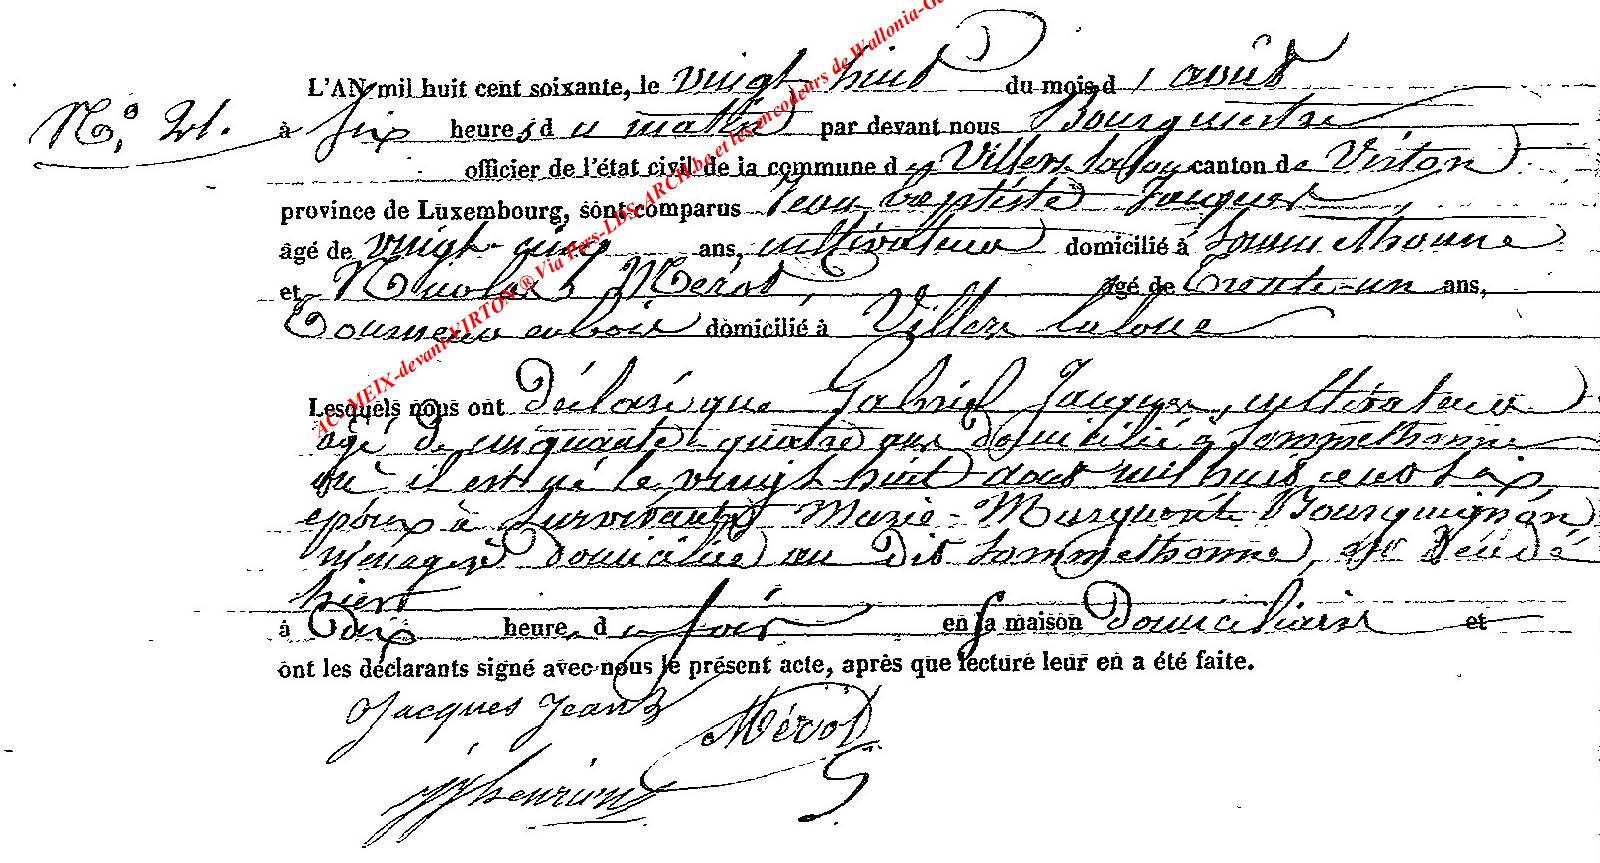 L'AN mil huit cent soixante, le vingt huit du mois d'août
N.° 21. à six heures du matin par devant nous Bourguestre
officier de l'état civil de la commune de Villers la loue canton de Virton
province de Luxembourg, sont comparus Jean Baptiste Jacques
âgé de vingt-cinq ans, cultivateur domicilié à Sommethonne
et Nicolas Mérot, âgé de trente-un ans,
Tourneur en bois domicilié à Villers la loue
Lesquels nous ont déclaré que Gabriel Jacques, cultivateur
âgé de cinquante quatre ans domicilié à Sommethonne
où il est né le vingt huit août mil huit cent six,
époux à survivante Marie-Marguerite Bourguignon
ménagère domiciliée au dit Sommethonne, est décédé
hier
à dix heure du soir en sa maison domiciliaire et
ont les déclarants signé avec nous le présent acte, après que lecture leur en a été faite.
Jacques Jean B Mérot
JJ henrion
AC-MEIX-devant-VIRTON ® Via Pers-LDS-ARCH.be et les encodeurs de Wallonia-Ge